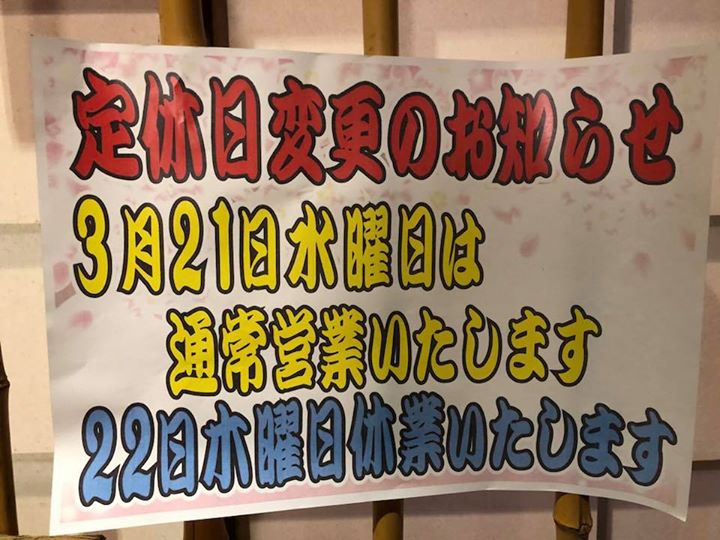 定休日変更のお知らせ
3月21日水曜日は
通常営業いたします
22日木曜日休業いたします